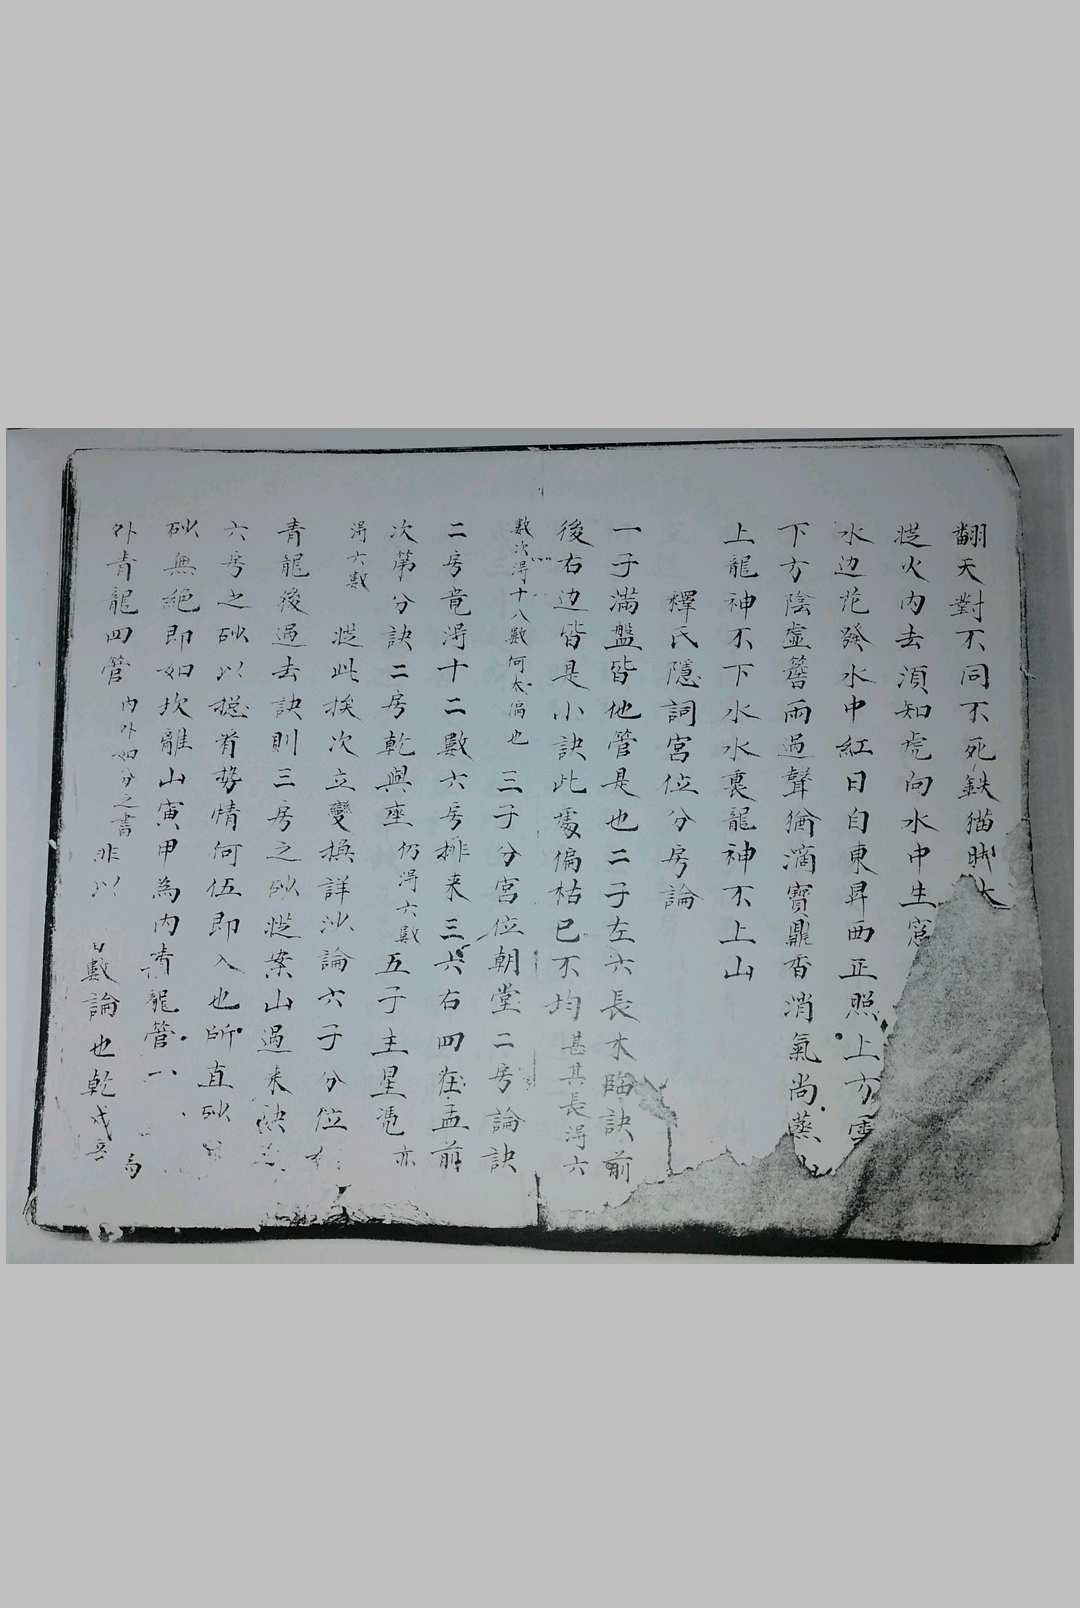 翻天對不同不死鉄猫𦚾大
從火内去須知虎向水中生
水边花發水中紅日自東昇西正照上方雲
下方陰虛簷雨過聲猶滴寶鼎香消氣尚蒸
上龍神不下水水裏龍神不上山
釋氏隱詞宮位分房論
一子滿盤皆他管是也二子左六長木臨訣前
後右边皆是小訣此處偏枯已不均甚其長淂六
數次淂十八數何太偏也 三子分宮位朝堂二房論訣
二房竟淂十二數六房排来三六右四在孟前
次第分訣二房乾與座仍淂六數五子主星馮亦
淂六數 從此挨次立變換詳沙論六子分位
青龍後過去訣則三房之砂從案山過来決
六房之砂以㧾看勢情何伍即入也所直砂
砂無絕即如坎離山寅甲為内青龍管一
外青龍四管内外如分之書非以 數論也乾戌